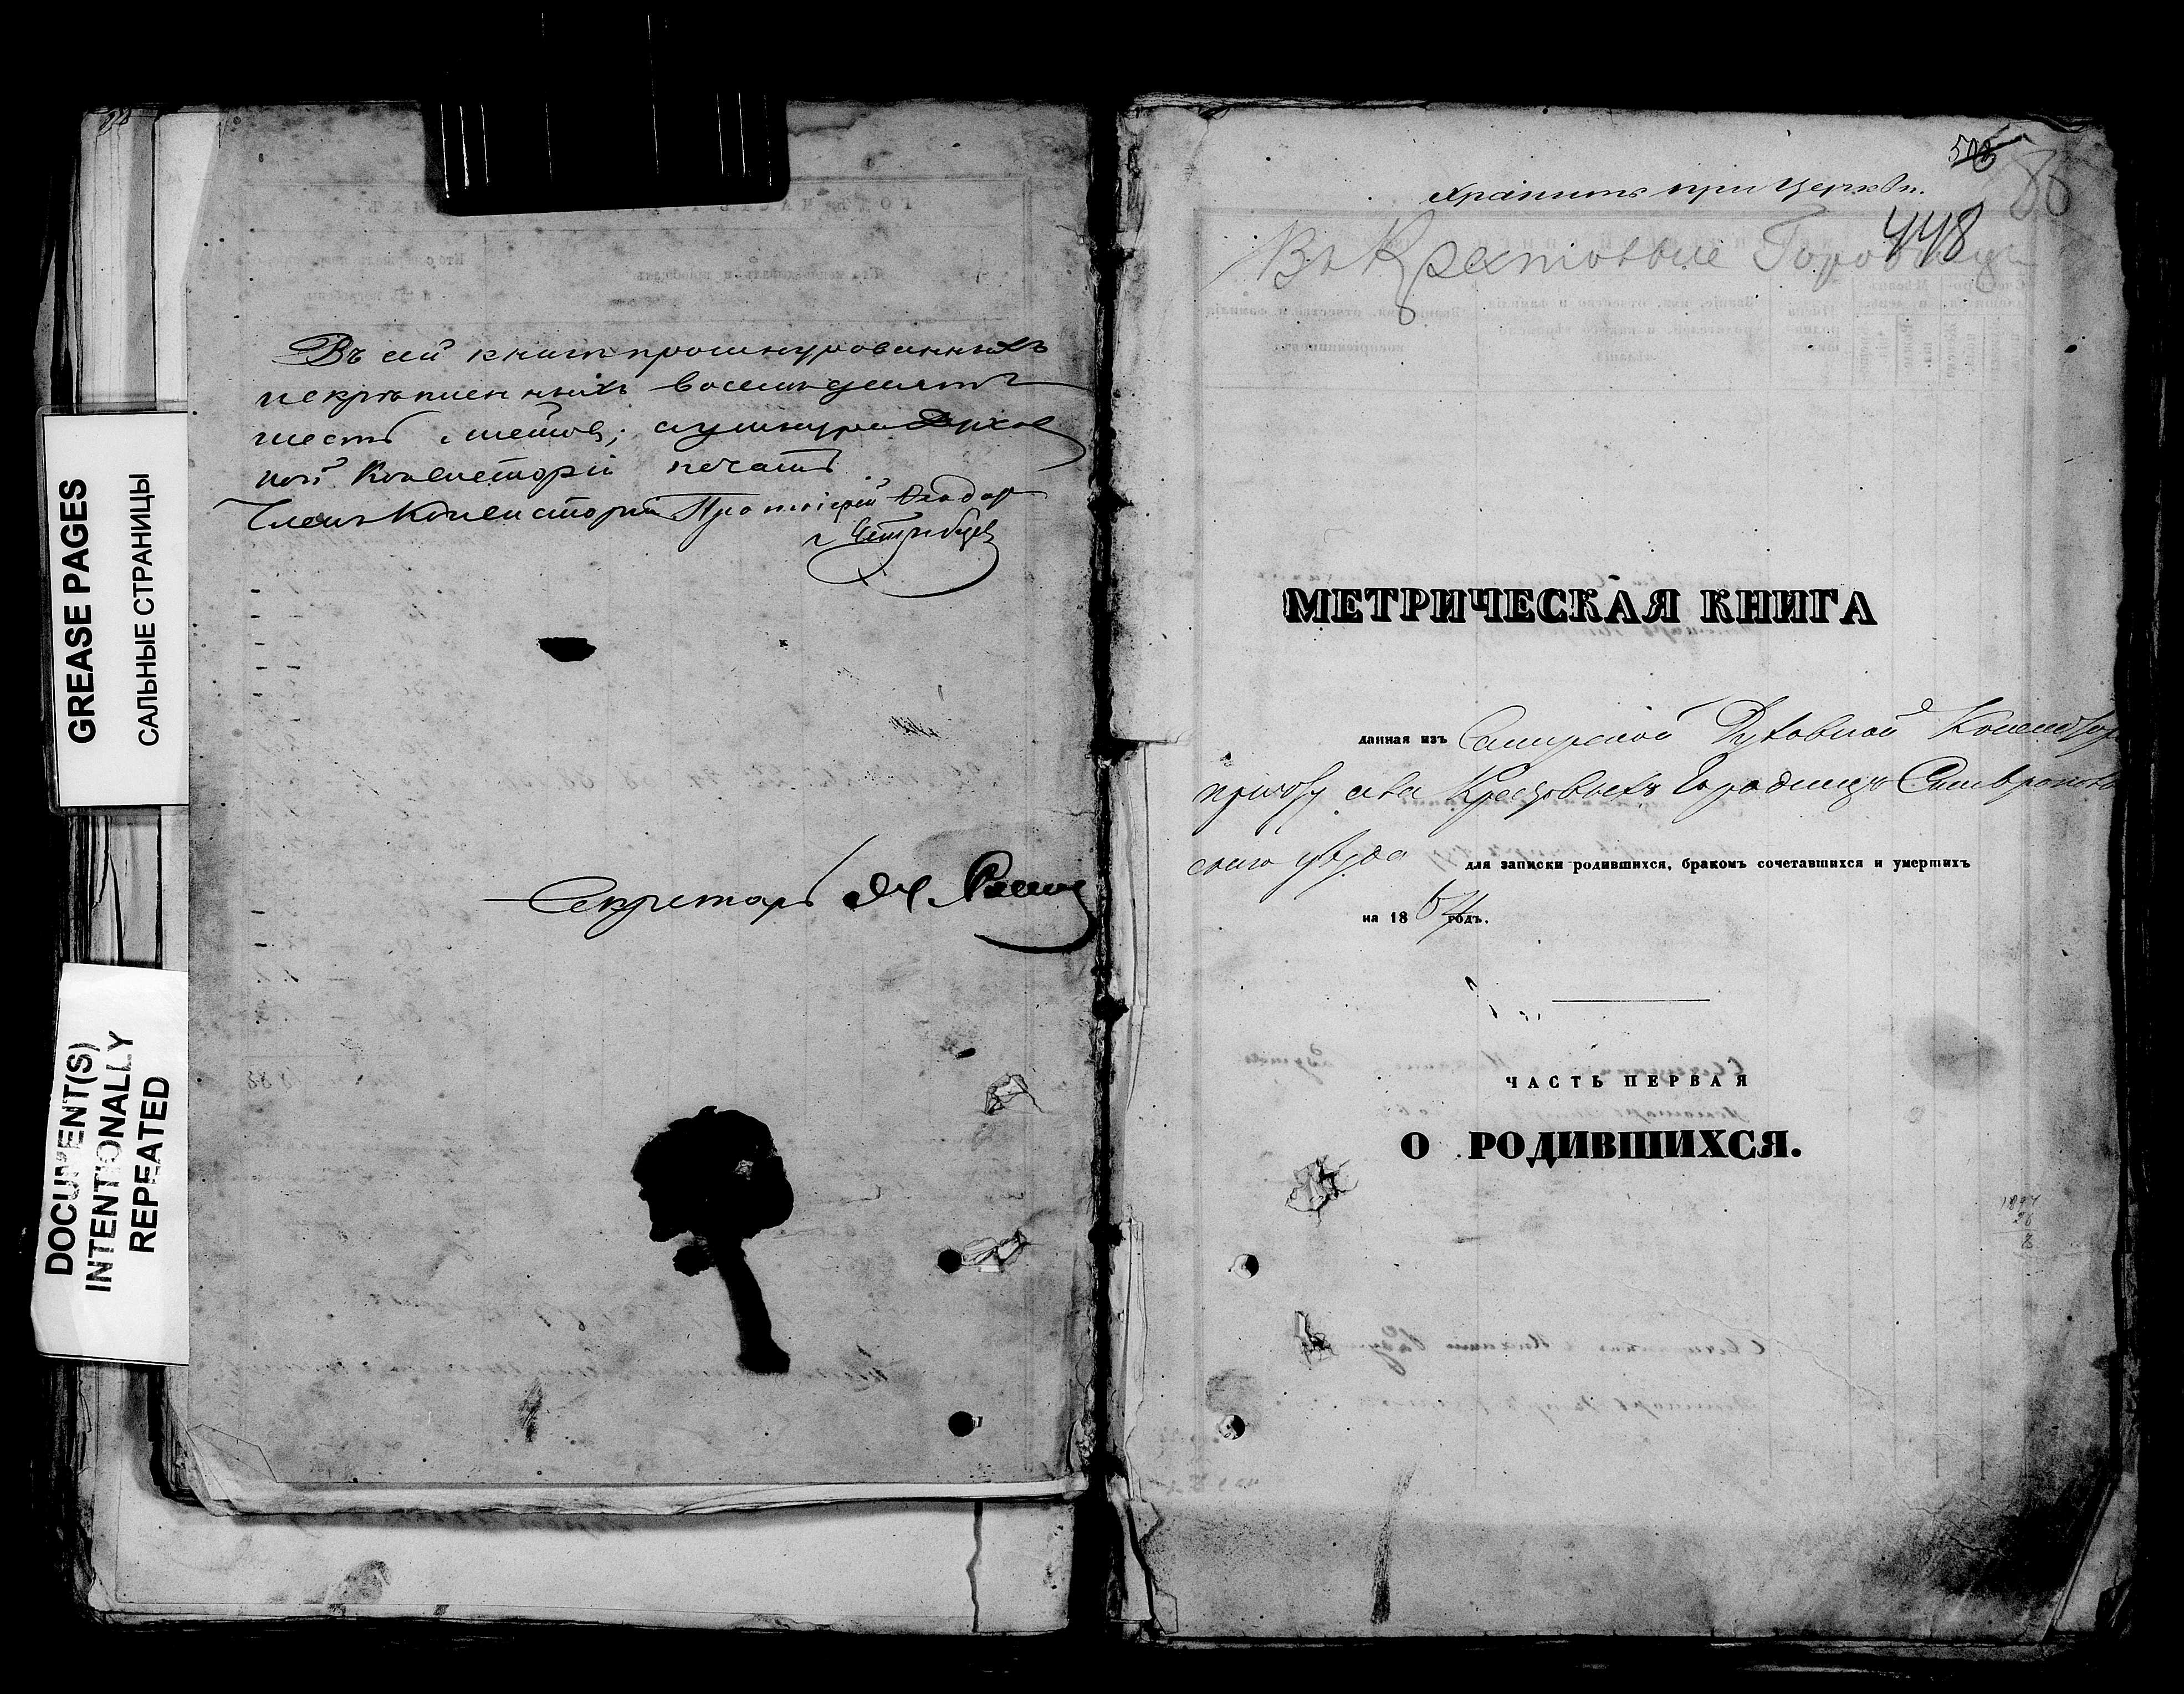 GREASE PAGES
САЛЬНЫЕ СТРАНИЦЫ
DOCUMENT(S)
INTENTIONALLY
REPEATED
Въ сей книгѣ прошнурованныхъ
и скрѣпленныхъ восемьдесятъ
шесть листовъ; а у шнура Духов
ной Консисторіи печать
Членъ Консисторіи Протоіерей Ѳеодор
Секретарь
508
86
Хранить при церкви.
448
Въ Крестовые Городищи
МЕТРИЧЕСКАЯ КНИГА
данная изъ Симбирской Духовной Консистор
причту села Крестовыхъ Городищъ Ставропол
скаго уѣзда для записки родившихся, бракомъ сочетавшихся и умершихъ
на 1864 годъ.
ЧАСТЬ ПЕРВАЯ
О РОДИВШИХСЯ.